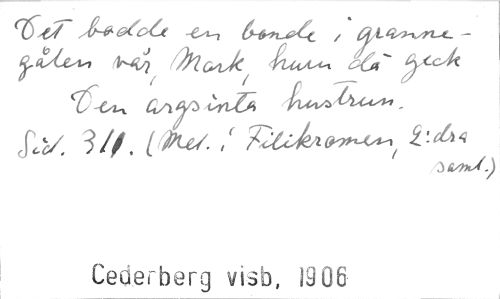 Det bodde en bonde i granne-
gålen vår, Mark, hur då geck
Den argsinta hustrun.
Sid. 311. (Mel. i Filikromen, 2:dra
saml.)
Cederberg visb, 1906